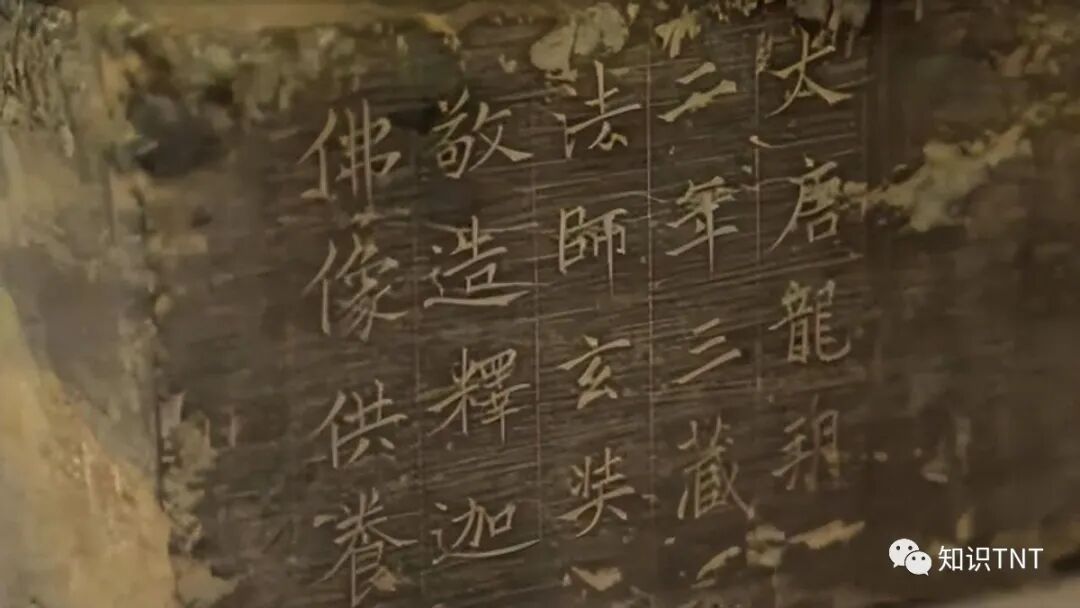 大唐龍朔
二年三藏
法師玄奘
敬造釋迦
佛像供養
知识TNT